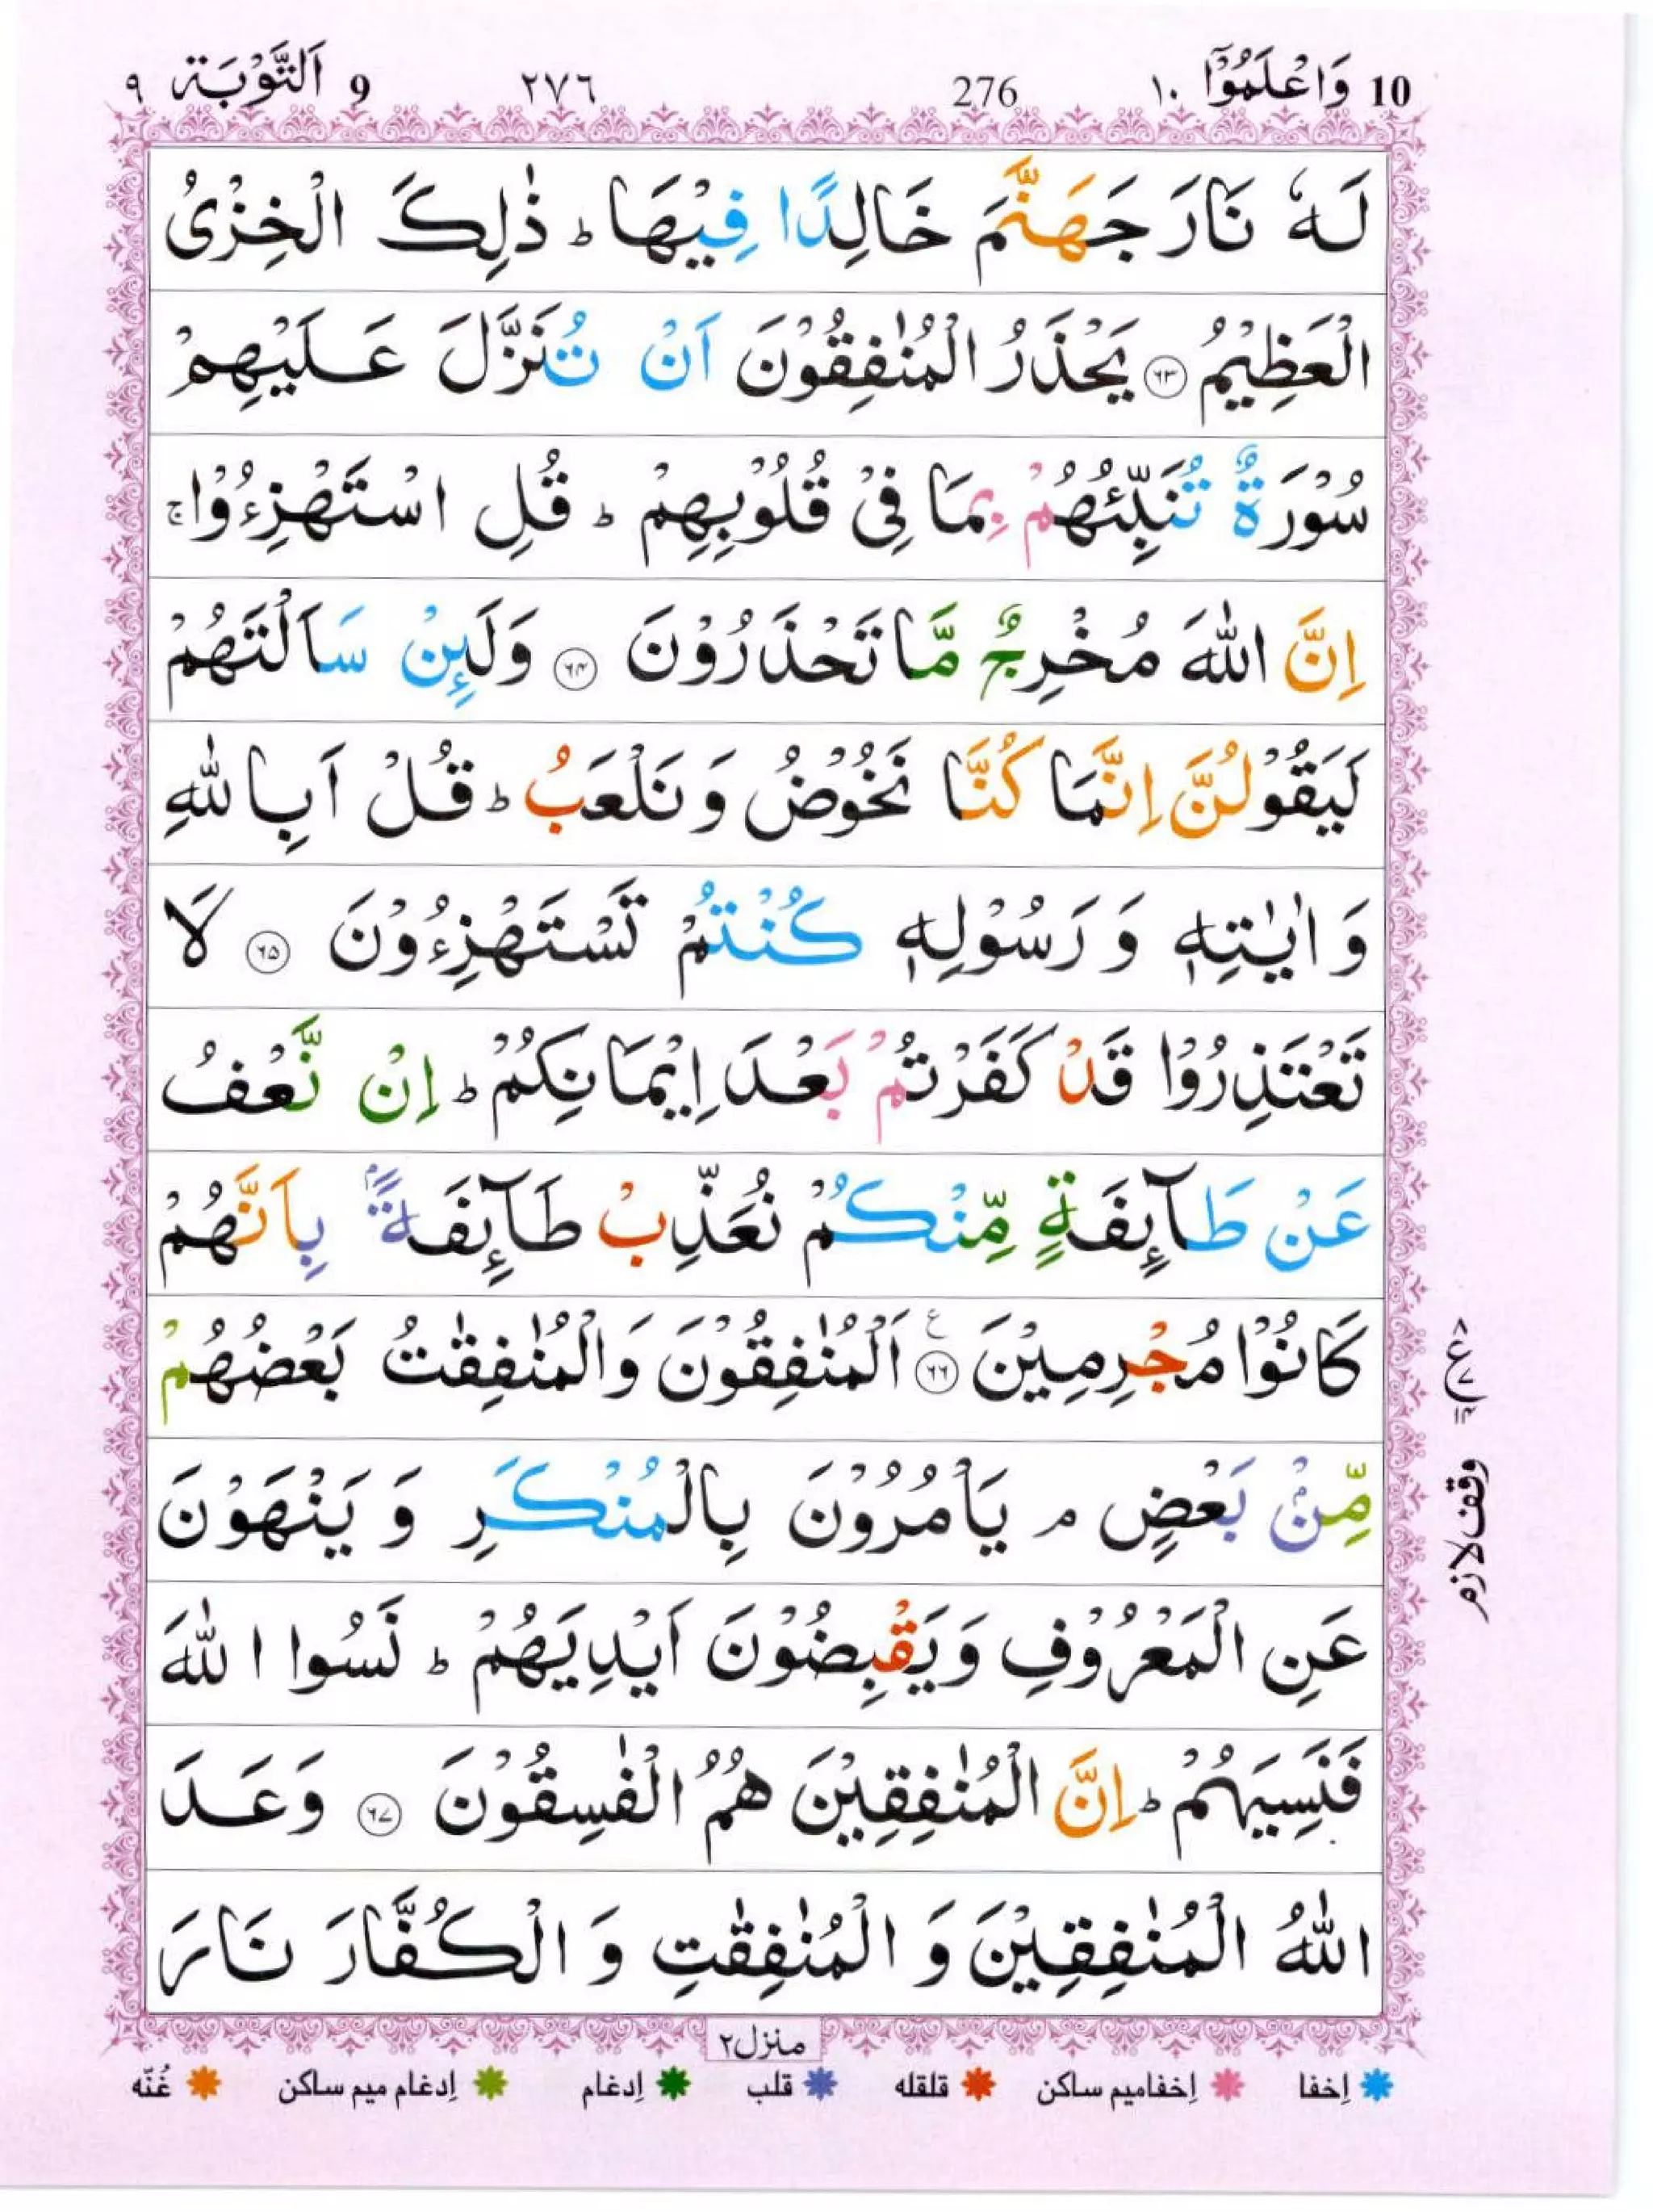 10 وَاعْلَمُوْۤا ١٠ 276 ٢٧٦ 9 اَلتَّوْبَة ٩
لَهٗ نَارَ جَهَنَّمَ خَالِدًا فِيْهَا ؕ ذٰلِكَ الْخِزْىُ
الْعَظِيْمُ ﴿۶۳﴾ يَحْذَرُ الْمُنٰفِقُوْنَ اَنْ تُنَزَّلَ عَلَيْهِمْ
سُوْرَةٌ تُنَبِّئُهُمْ بِمَا فِىْ قُلُوْبِهِمْ ؕ قُلِ اسْتَهْزِءُوْا ۚ
اِنَّ اللّٰهَ مُخْرِجٌ مَّا تَحْذَرُوْنَ ﴿۶۴﴾ وَلَئِنْ سَاَلْتَهُمْ
لَيَقُوْلُنَّ اِنَّمَا كُنَّا نَخُوْضُ وَنَلْعَبُ ؕ قُلْ اَبِاللّٰهِ
وَاٰيٰتِهٖ وَرَسُوْلِهٖ كُنْتُمْ تَسْتَهْزِءُوْنَ ﴿۶۵﴾ لَا
تَعْتَذِرُوْا قَدْ كَفَرْتُمْ بَعْدَ اِيْمَانِكُمْ ؕ اِنْ نَّعْفُ
عَنْ طَآئِفَةٍ مِّنْكُمْ نُعَذِّبْ طَآئِفَةًۢ بِاَنَّهُمْ
كَانُوْا مُجْرِمِيْنَ ﴿۶۶﴾ ع اَلْمُنٰفِقُوْنَ وَالْمُنٰفِقٰتُ بَعْضُهُمْ
مِّنْۢ بَعْضٍ ۘ يَاْمُرُوْنَ بِالْمُنْكَرِ وَيَنْهَوْنَ
عَنِ الْمَعْرُوْفِ وَيَقْبِضُوْنَ اَيْدِيَهُمْ ؕ نَسُوا اللّٰهَ
فَنَسِيَهُمْ ؕ اِنَّ الْمُنٰفِقِيْنَ هُمُ الْفٰسِقُوْنَ ﴿۶۷﴾ وَعَدَ
اللّٰهُ الْمُنٰفِقِيْنَ وَالْمُنٰفِقٰتِ وَالْكُفَّارَ نَارَ
وقف لازم
منزل ٢
اِخفا اِخفامیم ساکن قلقله قلب اِدغام اِدغام میم ساکن غُنّه